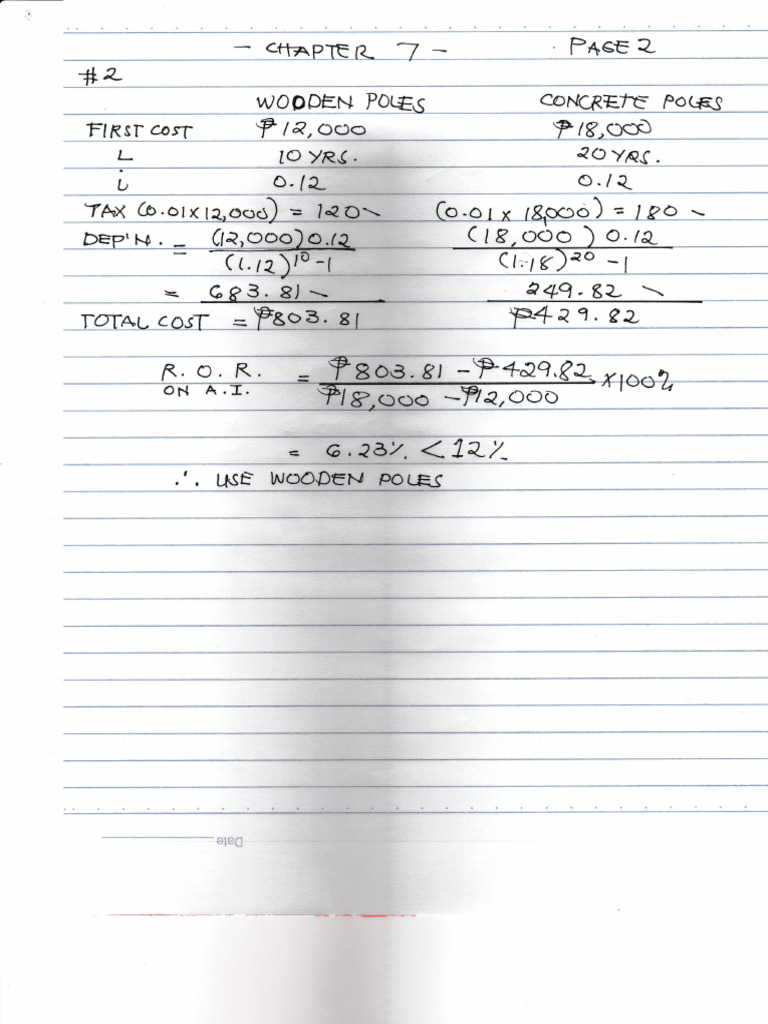 - CHAPTER 7 - PAGE 2
#2
WOODEN POLES CONCRETE POLES
FIRST COST ₱12,000 ₱18,000
L 10 YRS. 20 YRS.
i 0.12 0.12
TAX (0.01x12,000) = 120 (0.01 x 18,000) = 180
DEP'N. = (12,000)0.12 (18,000) 0.12
(1.12)^10 -1 (1.18)^20 -1
= 683.81 249.82
TOTAL COST = ₱803.81 ₱429.82
R. O. R. = ₱803.81 - ₱429.82 x100%
ON A.I. ₱18,000 - ₱12,000
= 6.23% < 12%
∴ USE WOODEN POLES
Date